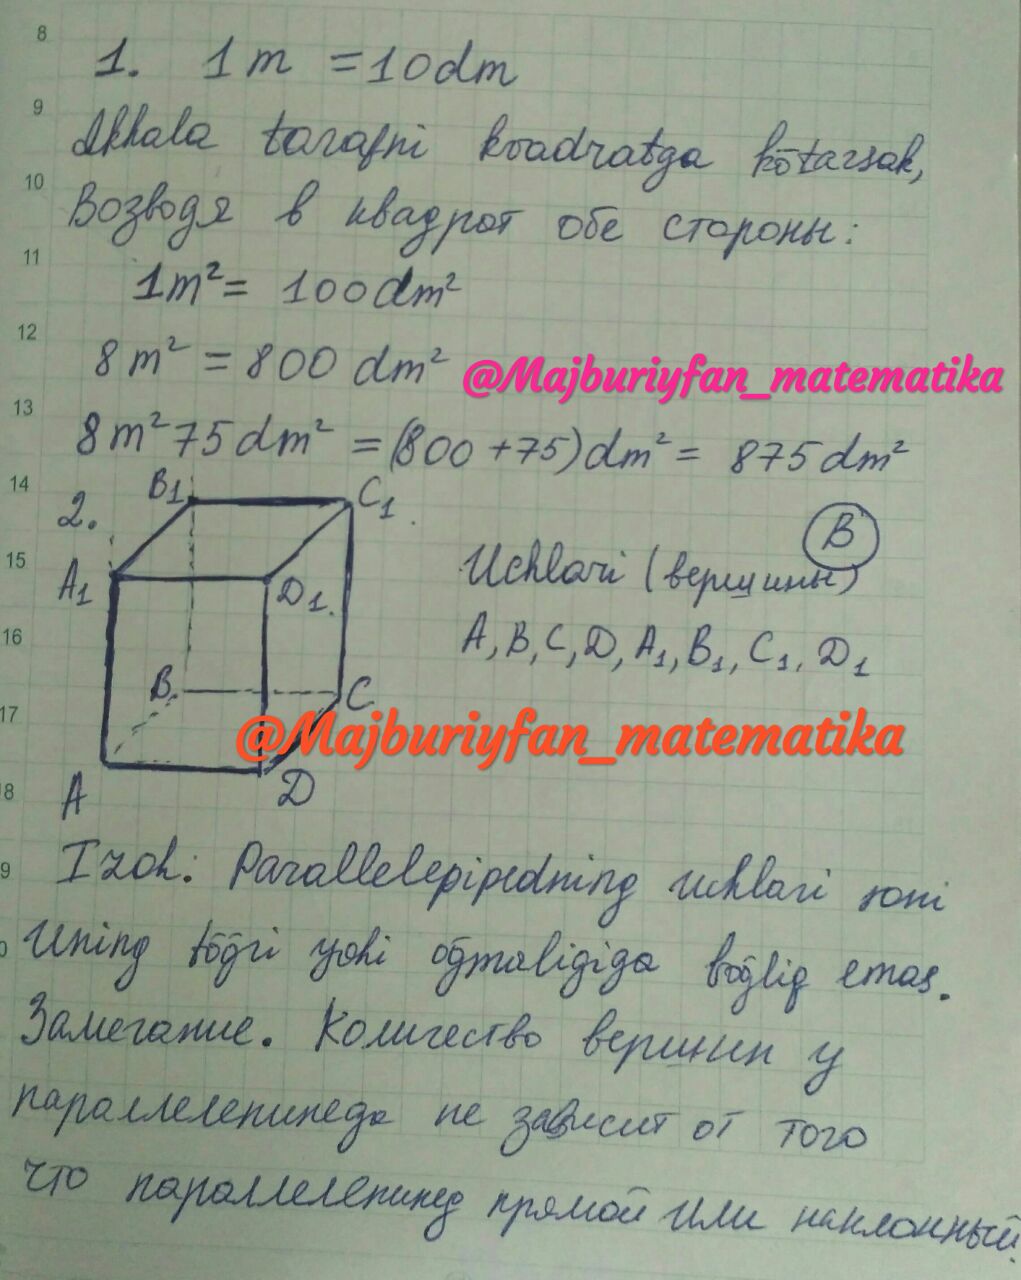 8
1. 1m = 10dm
9
Ikkala tarafni kvadratga kōtarsak,
10
Возводя в квадрат обе стороны:
11
1m² = 100dm²
12
8m² = 800 dm² @Majburiyfan_matematika
13
8m² 75dm² = (800 + 75)dm² = 875dm²
14
2. B1 C1
B
15
A1 D1
Uchlari (вершины)
16
A, B, C, D, A1, B1, C1, D1
B C
17
@Majburiyfan_matematika
A D
8
9
Izoh: Parallelepipedning uchlari soni
0
Uning tōğri yoki oğmaligiga bōğliq emas.
Замечание. Количество вершин у
параллелепипеда не зависит от того
что параллелепипед прямой или наклонный.